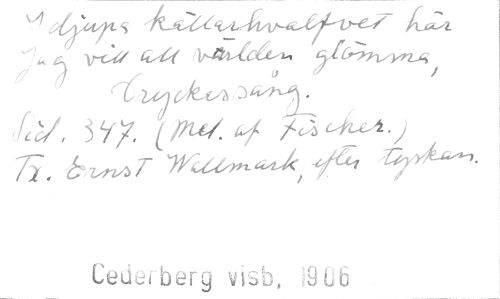 I djupa källarhvalfvet här
Jag vill all världen glömma,
Dryckessång.
Sid. 347. (Mel. af Fischer.)
Tx. Ernst Wallmark, efter tyskan.
Cederberg visb, 1906